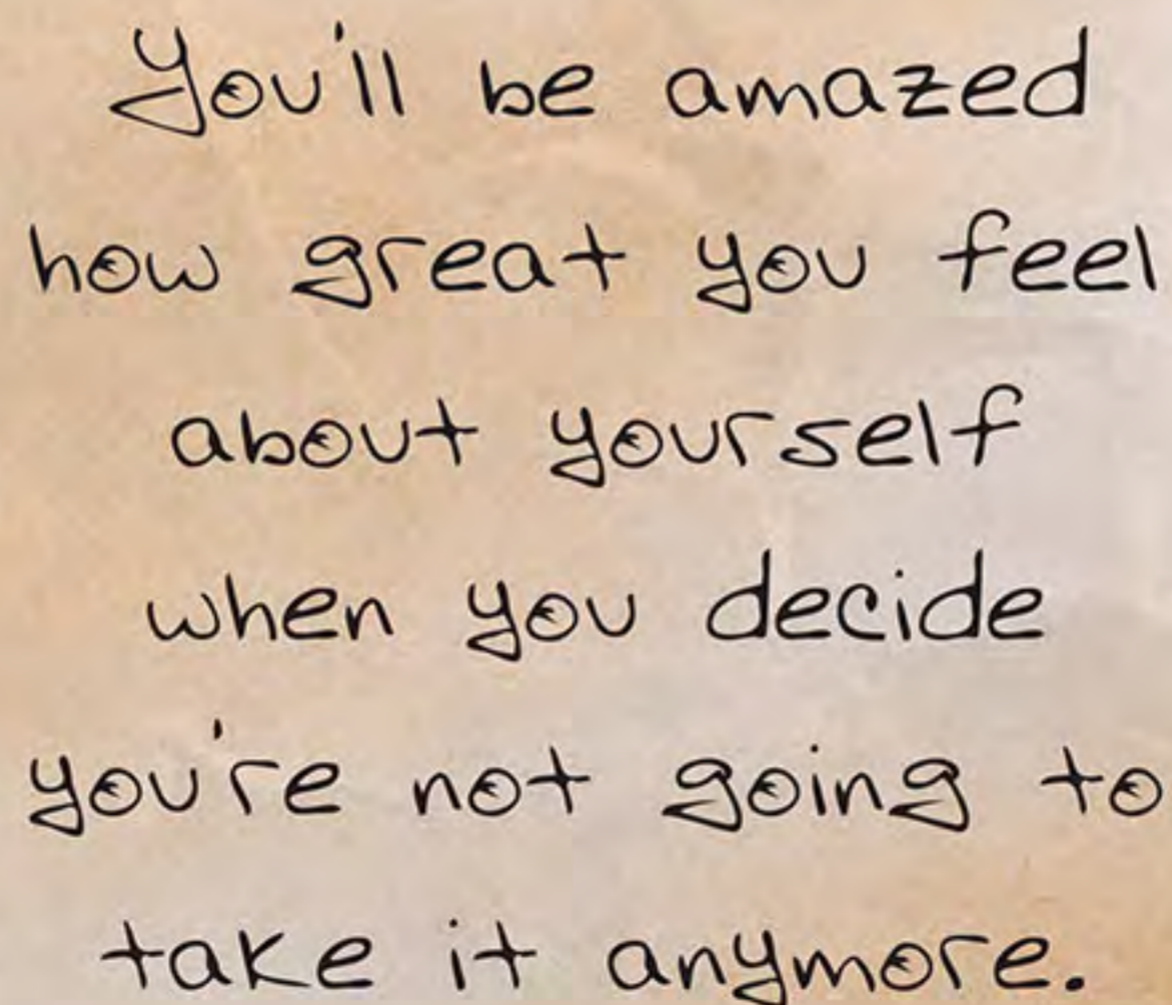 You'll be amazed
how great you feel
about yourself
when you decide
you're not going to
take it anymore.